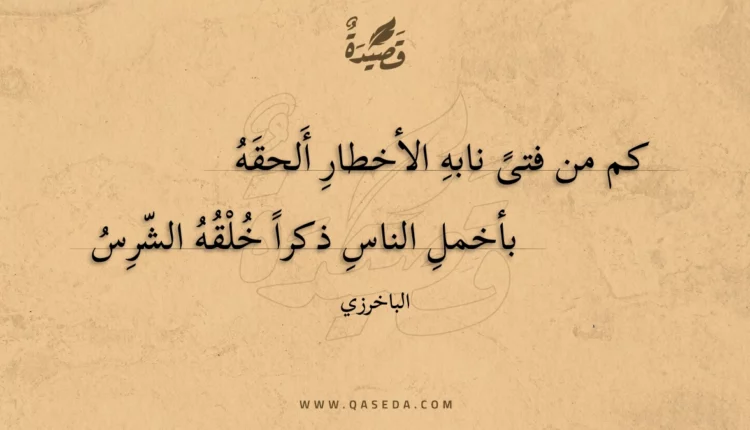 قَصِيْدَةٌ
كم من فتىً نابهِ الأخطارِ أَلحقَهُ
بأخملِ الناسِ ذكراً خُلْقُهُ الشّرِسُ
الباخرزي
WWW.QASEDA.COM